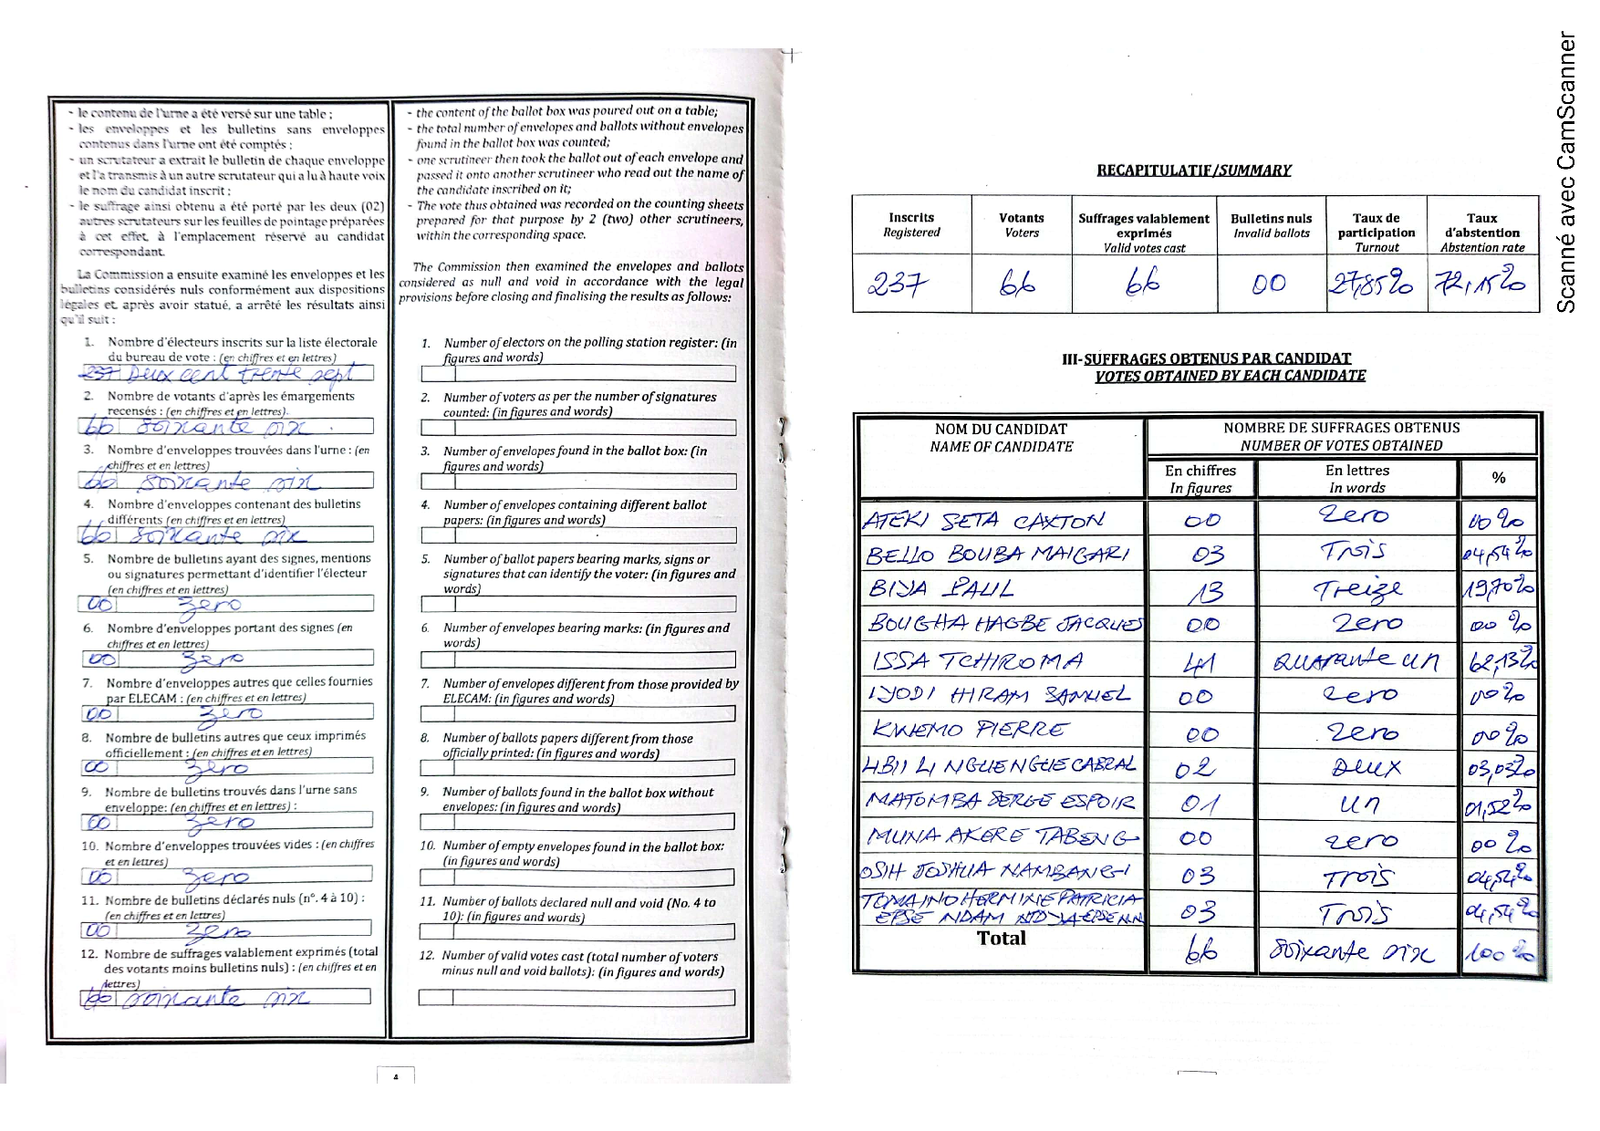 - le contenu de l'urne a été versé sur une table ;
- les enveloppes et les bulletins sans enveloppes
contenus dans l'urne ont été comptés ;
- un scrutateur a extrait le bulletin de chaque enveloppe
et l'a transmis à un autre scrutateur qui a lu à haute voix
le nom du candidat inscrit ;
- le suffrage ainsi obtenu a été porté par les deux (02)
autres scrutateurs sur les feuilles de pointage préparées
à cet effet, à l'emplacement réservé au candidat
correspondant.
La Commission a ensuite examiné les enveloppes et les
bulletins considérés nuls conformément aux dispositions
légales et, après avoir statué, a arrêté les résultats ainsi
qu'il suit :
1. Nombre d'électeurs inscrits sur la liste électorale
du bureau de vote : (en chiffres et en lettres)
237 Deux cent trente sept
2. Nombre de votants d'après les émargements
recensés : (en chiffres et en lettres).
66 soixante six
3. Nombre d'enveloppes trouvées dans l'urne : (en
chiffres et en lettres)
66 soixante six
4. Nombre d'enveloppes contenant des bulletins
différents (en chiffres et en lettres)
66 soixante six
5. Nombre de bulletins ayant des signes, mentions
ou signatures permettant d'identifier l'électeur
(en chiffres et en lettres)
00 zero
6. Nombre d'enveloppes portant des signes (en
chiffres et en lettres)
00 zero
7. Nombre d'enveloppes autres que celles fournies
par ELECAM : (en chiffres et en lettres)
00 zero
8. Nombre de bulletins autres que ceux imprimés
officiellement : (en chiffres et en lettres)
00 zero
9. Nombre de bulletins trouvés dans l'urne sans
enveloppe: (en chiffres et en lettres) :
00 zero
10. Nombre d'enveloppes trouvées vides : (en chiffres
et en lettres)
00 zero
11. Nombre de bulletins déclarés nuls (n°. 4 à 10) :
(en chiffres et en lettres)
00 zero
12. Nombre de suffrages valablement exprimés (total
des votants moins bulletins nuls) : (en chiffres et en
lettres)
66 soixante six
- the content of the ballot box was poured out on a table;
- the total number of envelopes and ballots without envelopes
found in the ballot box was counted;
- one scrutineer then took the ballot out of each envelope and
passed it onto another scrutineer who read out the name of
the candidate inscribed on it;
- The vote thus obtained was recorded on the counting sheets
prepared for that purpose by 2 (two) other scrutineers,
within the corresponding space.
The Commission then examined the envelopes and ballots
considered as null and void in accordance with the legal
provisions before closing and finalising the results as follows:
1. Number of electors on the polling station register: (in
figures and words)
2. Number of voters as per the number of signatures
counted: (in figures and words)
3. Number of envelopes found in the ballot box: (in
figures and words)
4. Number of envelopes containing different ballot
papers: (in figures and words)
5. Number of ballot papers bearing marks, signs or
signatures that can identify the voter: (in figures and
words)
6. Number of envelopes bearing marks: (in figures and
words)
7. Number of envelopes different from those provided by
ELECAM: (in figures and words)
8. Number of ballots papers different from those
officially printed: (in figures and words)
9. Number of ballots found in the ballot box without
envelopes: (in figures and words)
10. Number of empty envelopes found in the ballot box:
(in figures and words)
11. Number of ballots declared null and void (No. 4 to
10): (in figures and words)
12. Number of valid votes cast (total number of voters
minus null and void ballots): (in figures and words)
4
RECAPITULATIF/SUMMARY
Inscrits Registered Votants Voters Suffrages valablement exprimés Valid votes cast Bulletins nuls Invalid ballots Taux de participation Turnout Taux d'abstention Abstention rate
237 66 66 00 27,85% 72,15%
III-SUFFRAGES OBTENUS PAR CANDIDAT
VOTES OBTAINED BY EACH CANDIDATE
NOM DU CANDIDAT NOMBRE DE SUFFRAGES OBTENUS
NAME OF CANDIDATE NUMBER OF VOTES OBTAINED
En chiffres En lettres %
In figures In words
ATEKI SETA CAXTON 00 zero 00%
BELLO BOUBA MAIGARI 03 Trois 04,54%
BIYA PAUL 13 Treize 19,70%
BOUGHA HAGBE JACQUES 00 zero 00%
ISSA TCHIROMA 41 quarante un 62,13%
IYODI HIRAM SAMUEL 00 zero 00%
KWEMO PIERRE 00 zero 00%
LIBII LI NGUE NGUE CABRAL 02 Deux 03,03%
MATOMBA SERGE ESPOIR 01 un 01,52%
MUNA AKERE TABENG 00 zero 00%
OSIH JOSHUA NAMBANGI 03 Trois 04,54%
TOMAINO HERMINE PATRICIA
EPSE NDAM 03 Trois 04,54%
Total 66 soixante six 100%
Scanné avec CamScanner